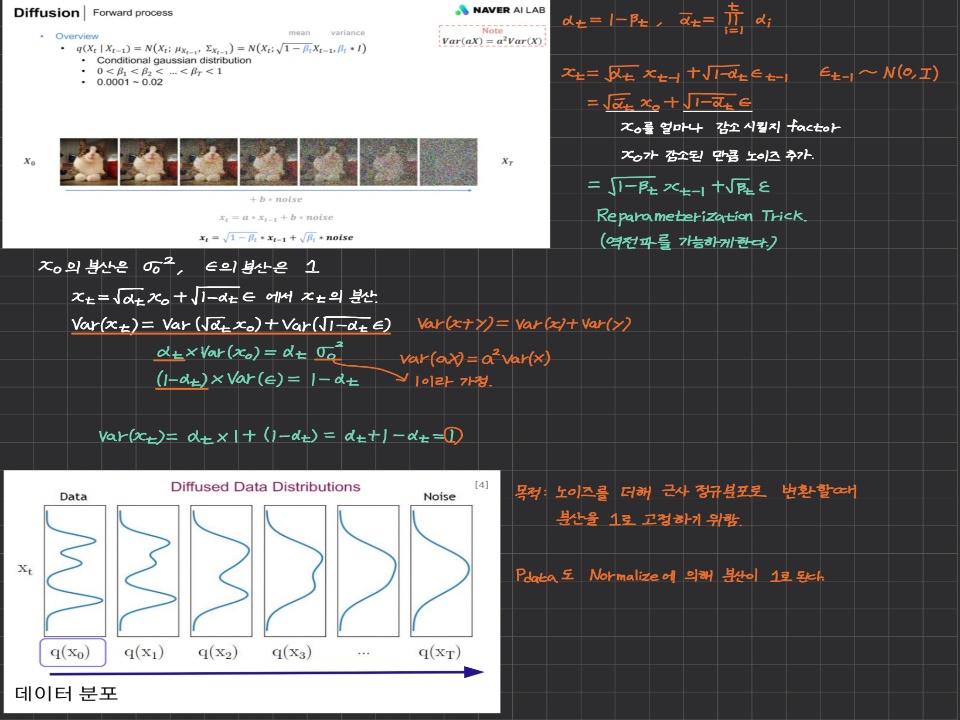 Diffusion | Forward process
NAVER AI LAB
Overview
mean variance
q(X_t | X_{t-1}) = N(X_t; μ_{X_{t-1}}, Σ_{X_{t-1}}) = N(X_t; √(1-β_t) X_{t-1}, β_t * I)
Conditional gaussian distribution
0 < β_1 < β_2 < ... < β_T < 1
0.0001 ~ 0.02
Note
Var(aX) = a²Var(X)
X_0
X_T
+ b * noise
x_t = a * x_{t-1} + b * noise
x_t = √(1-β_t) * x_{t-1} + √β_t * noise
α_t = 1-β_t , ᾱ_t = ∏_{i=1}^{t} α_i
x_t = √α_t x_{t-1} + √(1-α_t) ε_{t-1} ε_{t-1} ~ N(0, I)
= √ᾱ_t x_0 + √(1-ᾱ_t) ε
x_0를 얼마나 감소시킬지 factor
x_0가 감소된 만큼 노이즈 추가.
= √(1-β_t) x_{t-1} + √β_t ε
Reparameterization Trick.
(역전파를 가능하게한다.)
x_0의 분산은 σ_0², ε의 분산은 1
x_t = √α_t x_0 + √(1-α_t) ε 에서 x_t의 분산.
Var(x_t) = Var(√α_t x_0) + Var(√(1-α_t) ε) Var(x+Y) = Var(x) + Var(Y)
α_t × Var(x_0) = α_t σ_0² Var(aX) = a² Var(x)
(1-α_t) × Var(ε) = 1-α_t 1이라 가정.
Var(x_t) = α_t × 1 + (1-α_t) = α_t + 1 - α_t = 1
Diffused Data Distributions
[4]
Data Noise
x_t
q(x_0) q(x_1) q(x_2) q(x_3) ... q(x_T)
데이터 분포
목적: 노이즈를 더해 근사 정규분포로 변환할때
분산을 1로 고정하기 위함.
P_data도 Normalize에 의해 분산이 1로 된다.